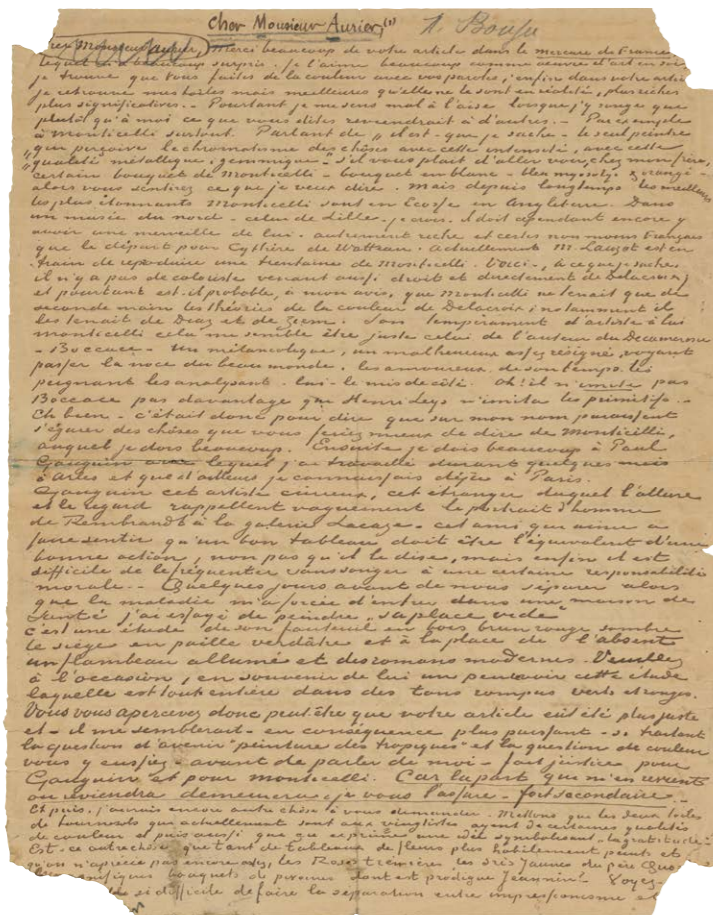 Cher Monsieur Aurier,
Cher Monsieur Aurier, Merci beaucoup de votre article dans le mercure de France
lequel m'a beaucoup surpris. je l'aime beaucoup comme œuvre d'art en soi
je trouve que vous faites de la couleur avec vos paroles; enfin dans votre article
je retrouve mes toiles mais meilleures qu'elles ne le sont en réalité, plus riches
plus significatives. – Pourtant je me sens mal à l'aise lorsque j'y songe que
plutôt qu'à moi ce que vous dites reviendrait à d'autres. – Par exemple
à Monticelli surtout. Parlant de „il est – que je sache – le seul peintre
„qui perçoive le chromatisme des choses avec cette intensité, avec cette
„qualité métallique, gemmique" s'il vous plait d'aller voir, chez mon frère,
certain bouquet de Monticelli – bouquet en blanc – bleu myosotys & orangé –
alors vous sentirez ce que je veux dire. mais depuis longtemps les meilleurs
les plus étonnants Monticelli sont en Ecosse en Angleterre. Dans
un musée du nord – celui de Lille, je crois, il doit cependant encore y
avoir une merveille de lui – autrement riche et certes non moins français
que le départ pour Cythère de Watteau. actuellement M. Lauzet est en
train de reproduire une trentaine de Monticelli. Voici, à ce que je sache,
il n'y a pas de coloriste venant aussi droit et directement de Delacroix;
et pourtant est-il probable, à mon avis, que Monticelli ne tenait que de
seconde main les théories de la couleur de Delacroix; notamment il
les tenait de Diaz et de Ziem. Son tempérament d'artiste à lui
monticelli cela me semble être juste celui de l'auteur du Decamerone
– Boccace – Un mélancolique, un malheureux assez résigné, voyant
passer la noce du beau monde, les amoureux de son temps, les
peignant les analysant – lui – le mis de côté. Oh! il n'imite pas
Boccace pas davantage que Henri Leys n'imita les primitifs. –
Eh bien – c'était donc pour dire que sur mon nom paraissent
s'égarer des choses que vous feriez mieux de dire de Monticelli,
auquel je dois beaucoup. Ensuite je dois beaucoup à Paul
Gauguin avec lequel j'ai travaillé durant quelques mois
à Arles et que d'ailleurs je connaissais déjà à Paris.
Gauguin cet artiste curieux, cet étranger duquel l'allure
et le regard rappellent vaguement le portrait d'homme
de Rembrandt à la galerie Lacaze – cet ami qui aime à
faire sentir qu'un bon tableau doit être l'équivalent d'une
bonne action, non pas qu'il le dise, mais enfin il est
difficile de le fréquenter sans songer à une certaine responsabilité
morale. – Quelques jours avant de nous séparer alors
que la maladie m'a forcé d'entrer dans une maison de
santé j'ai essayé de peindre „sa place vide"
c'est une étude de son fauteuil en bois brun rouge sombre
le siège en paille verdâtre et à la place de l'absent
un flambeau allumé et des romans modernes. Veuillez
à l'occasion, en souvenir de lui un peu revoir cette étude
laquelle est toute entière dans des tons rompus verts et rouges.
Vous vous apercevrez donc peut être que votre article eût été plus juste
et – il me semblerait – en conséquence plus puissant – si traitant
la question d'avenir "peinture des tropiques" et la question de couleur
vous y eussiez – avant de parler de moi – fait justice pour
Gauguin et pour monticelli. Car la part qui m'en revient
ou reviendra demeurera, je vous l'assure – fort secondaire. –
Et puis, j'aurais encore autre chose à vous demander. Mettons que les deux toiles
de tournesols qui actuellement sont aux vingtistes ayent de certaines qualités
de couleur et puis aussi que ça exprime une idée symbolisant „la gratitude".
Est-ce autre chose que tant de tableaux de fleurs plus habilement peints et
qu'on n'apprécie pas encore assez, les Roses trémières les Iris Jaunes du père Quost
les magnifiques bouquets de pivoines dont est prodigue Jeannin? Voyez
si difficile de faire la séparation entre impressionisme et